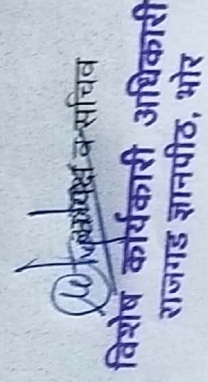 व सचिव
विशेष कार्यकारी अधिकारी
राजगड ज्ञानपीठ, भोर